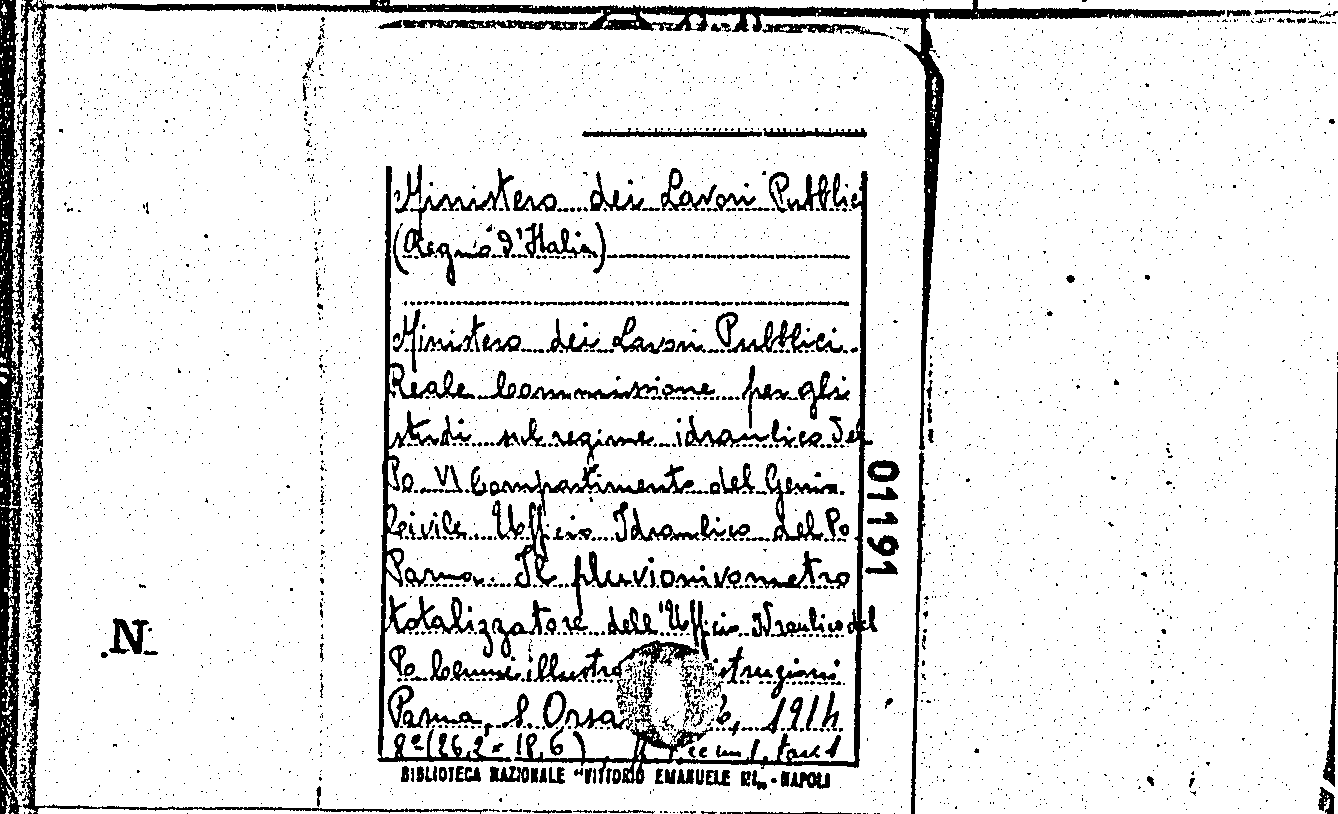 Ministero dei Lavori Pubblici
(Regno d'Italia)
Ministero dei Lavori Pubblici.
Reale Commissione per gli
studi sul regime idraulico del
Po VI Compartimento del Genio
Civile Ufficio Idraulico del Po
Parma. Il pluvionivometro
totalizzatore dell'Ufficio Idraulico del
Po Cenni illustra istruzioni
Parma, Orsa 1914
8º (26,2 = 18,6)
BIBLIOTECA NAZIONALE "VITTORIO EMANUELE III„ - NAPOLI
01191
N